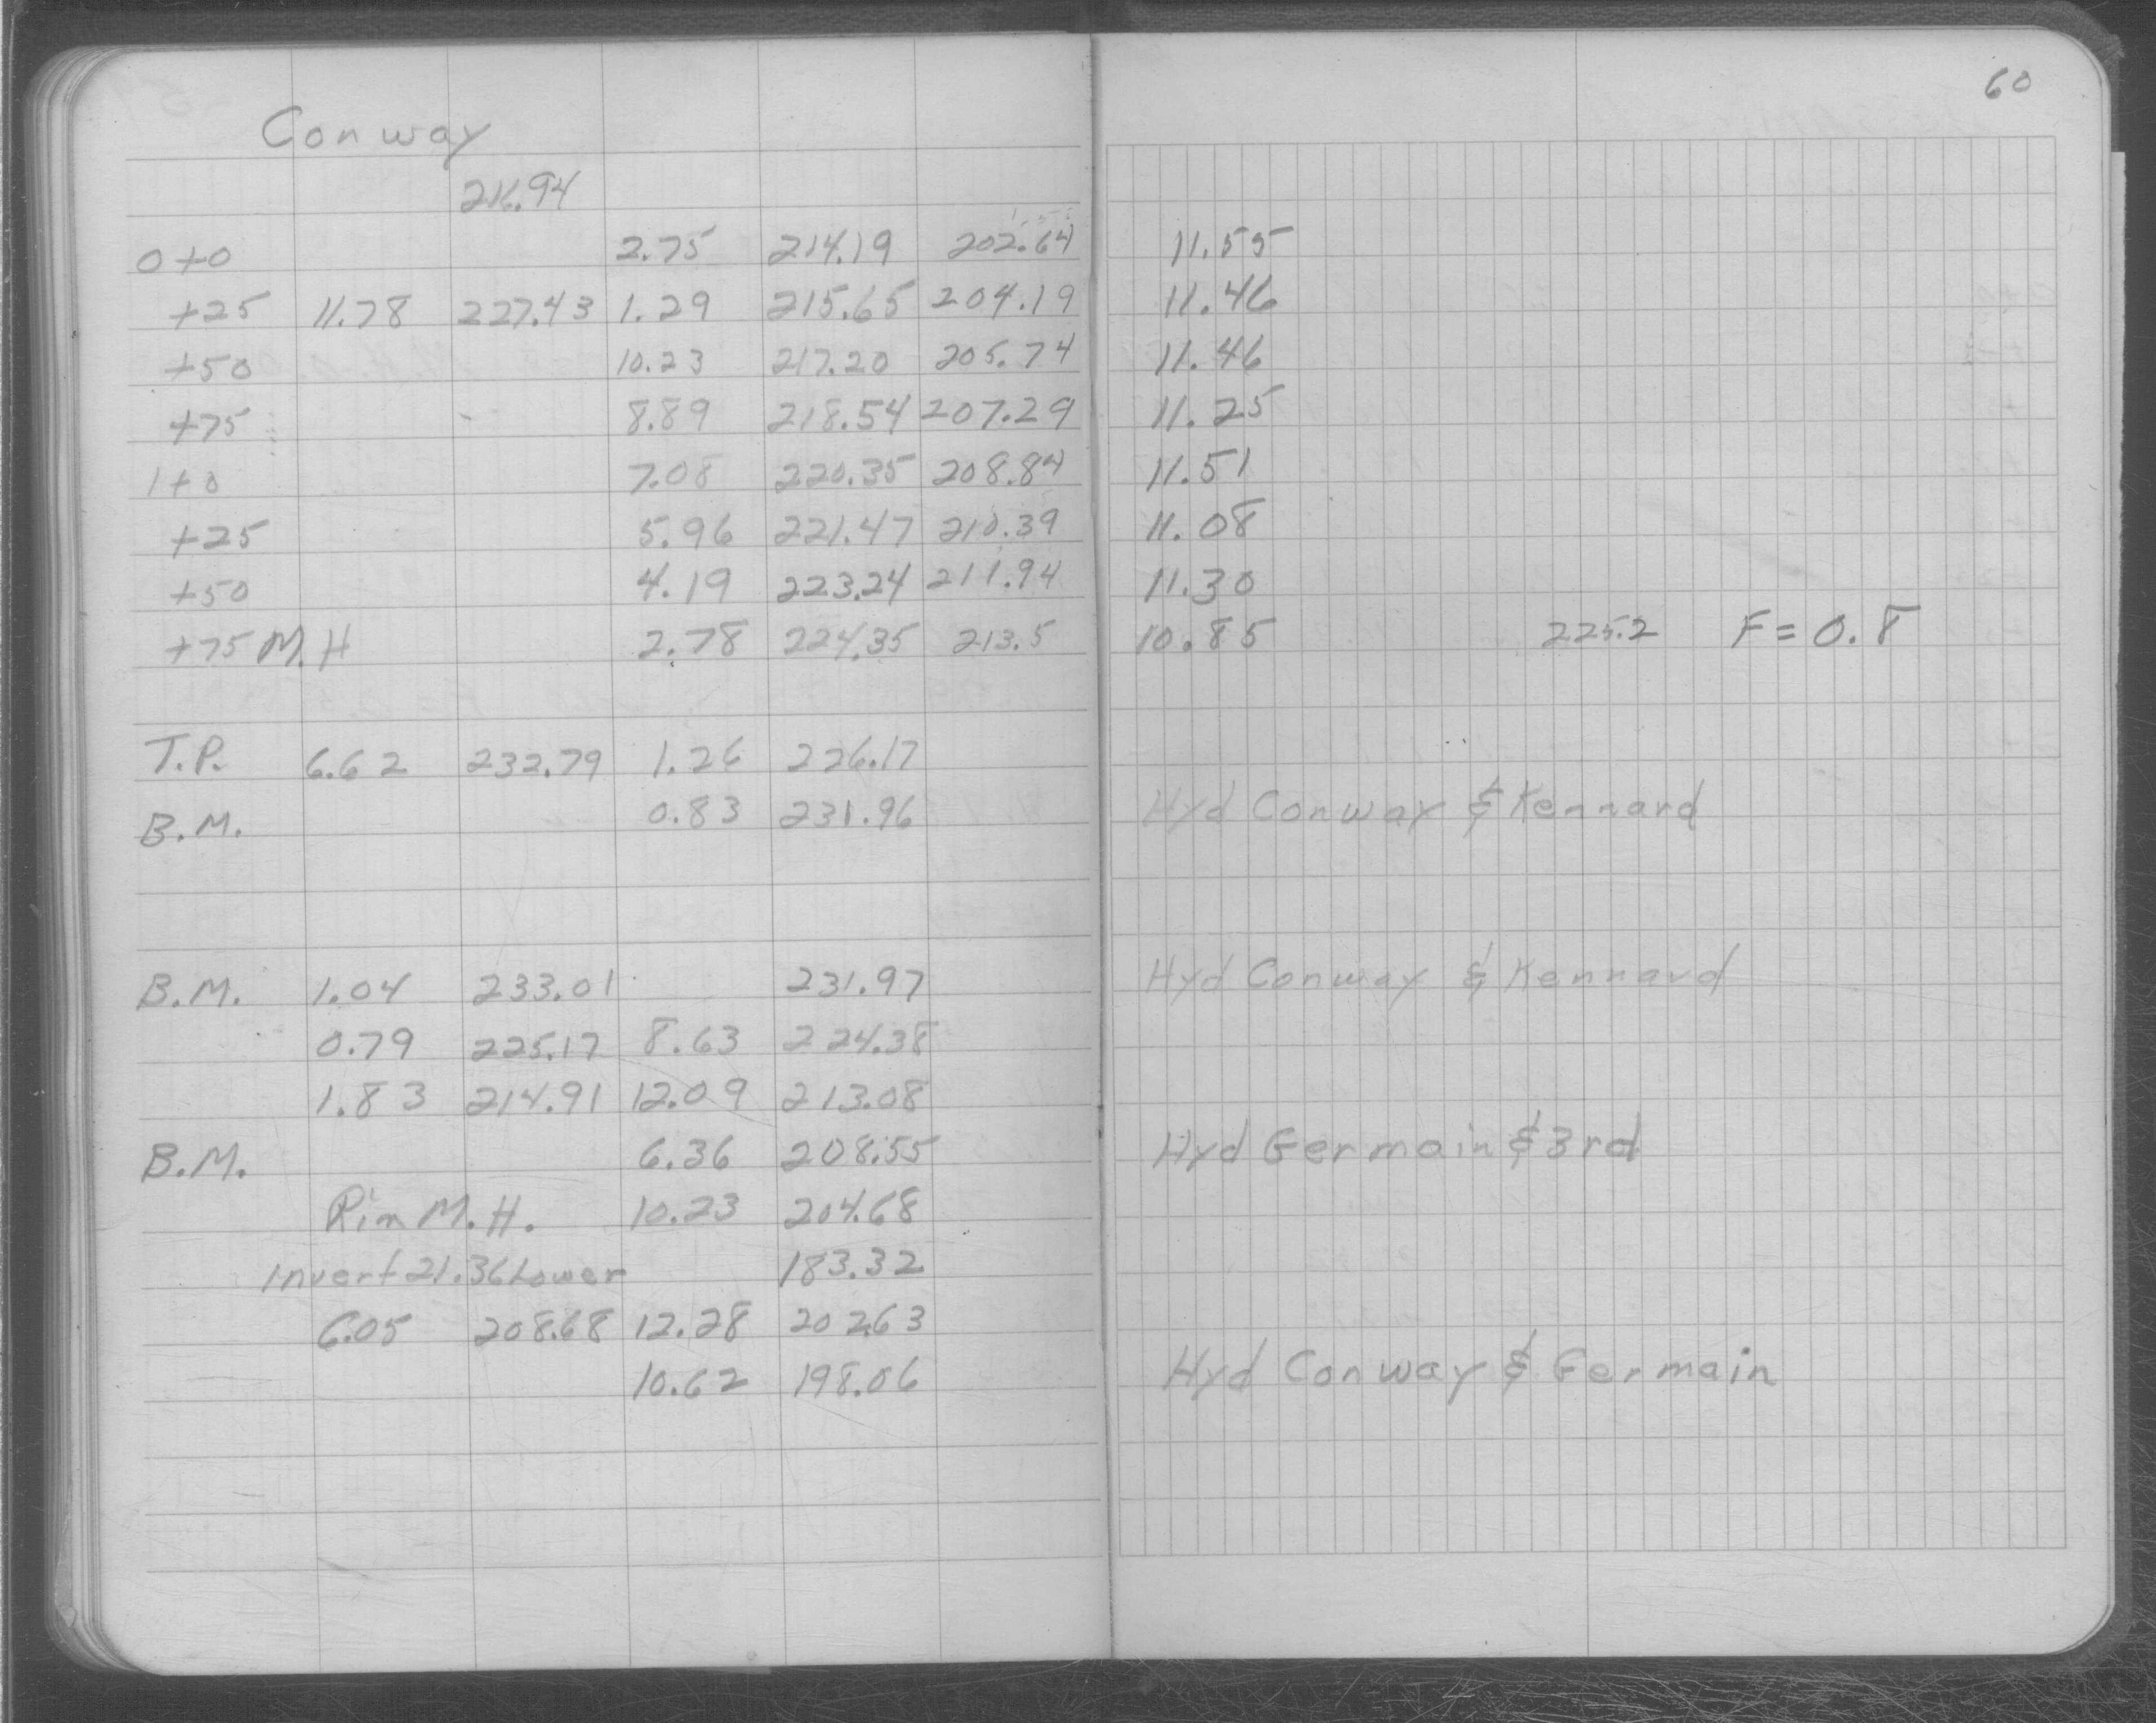 60
Conway
216.94
0+0 2.75 214.19 202.64 11.55
+25 11.78 227.43 1.29 215.65 204.19 11.46
+50 10.23 217.20 205.74 11.46
+75 8.89 218.54 207.29 11.25
1+0 7.08 220.35 208.84 11.51
+25 5.96 221.47 210.39 11.08
+50 4.19 223.24 211.94 11.30
+75 M.H 2.78 224.35 213.5 10.85 225.2 F=0.8
T.P. 6.62 232.79 1.26 226.17
B.M. 0.83 231.96 Hyd Conway & Kennard
B.M. 1.04 233.01 231.97 Hyd Conway & Kennard
0.79 225.17 8.63 224.38
1.83 214.91 12.09 213.08
B.M. 6.36 208.55 Hyd Germain & 3rd
Rim M.H. 10.23 204.68
Invert 21.36 Lower 183.32
6.05 208.68 12.28 202.63
10.62 198.06 Hyd Conway & Germain